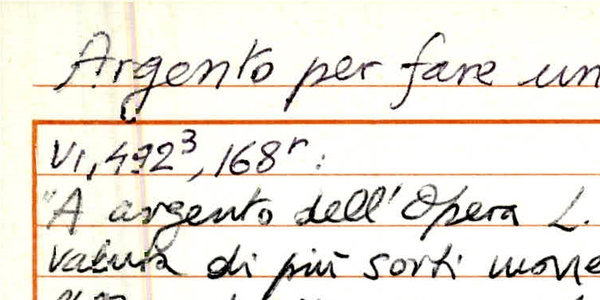 Argento per fare un
VI, 492³, 168ʳ:
"A argento dell'Opera L.
valuta di più sorti mone